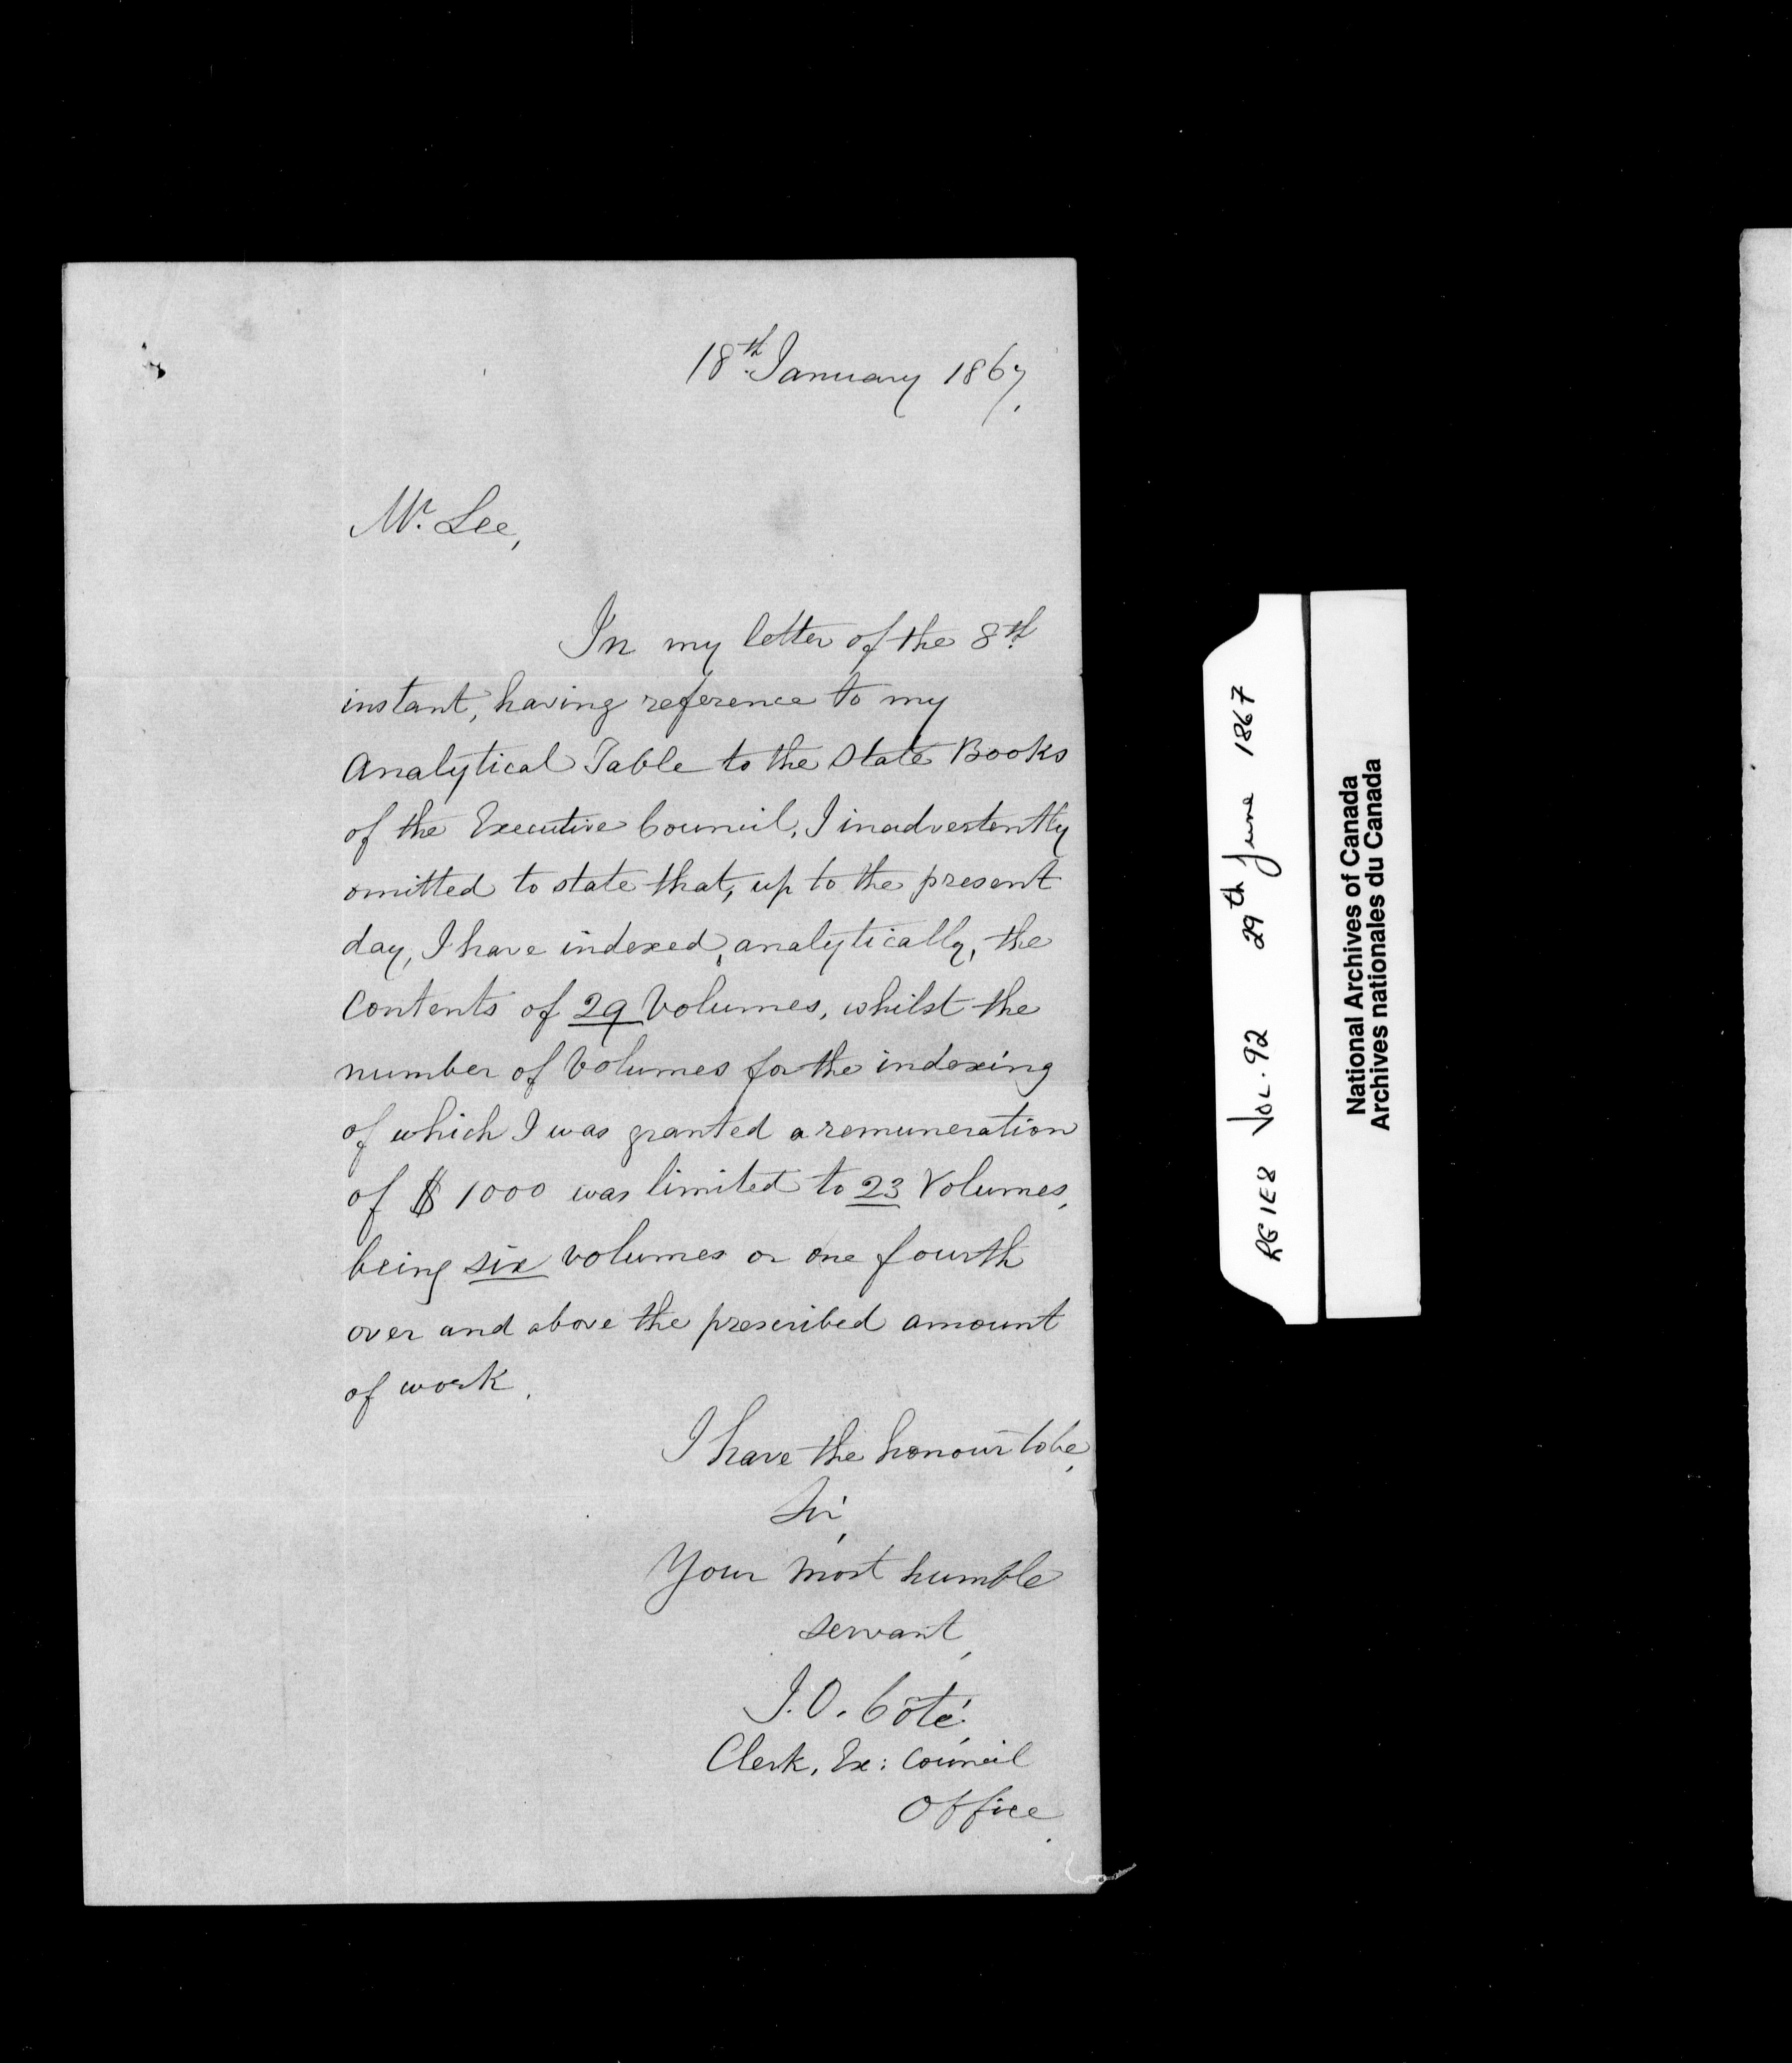 18th January 1867.
Mr. Lee,
In my letter of the 8th
instant, having reference to my
Analytical Table to the State Books
of the Executive Council, I inadvertently
omitted to state that, up to the present
day, I have indexed, analytically, the
Contents of 29 Volumes, whilst the
number of Volumes for the indexing
of which I was granted a remuneration
of $ 1000 was limited to 23 Volumes,
being six volumes or one fourth
over and above the prescribed amount
of work.
I have the honour to be,
Sir,
Your most humble
servant,
J. O. Côté,
Clerk, Ex: Council
Office.
RG 1 E8 VOL. 92 29th June 1867
National Archives of Canada
Archives nationales du Canada